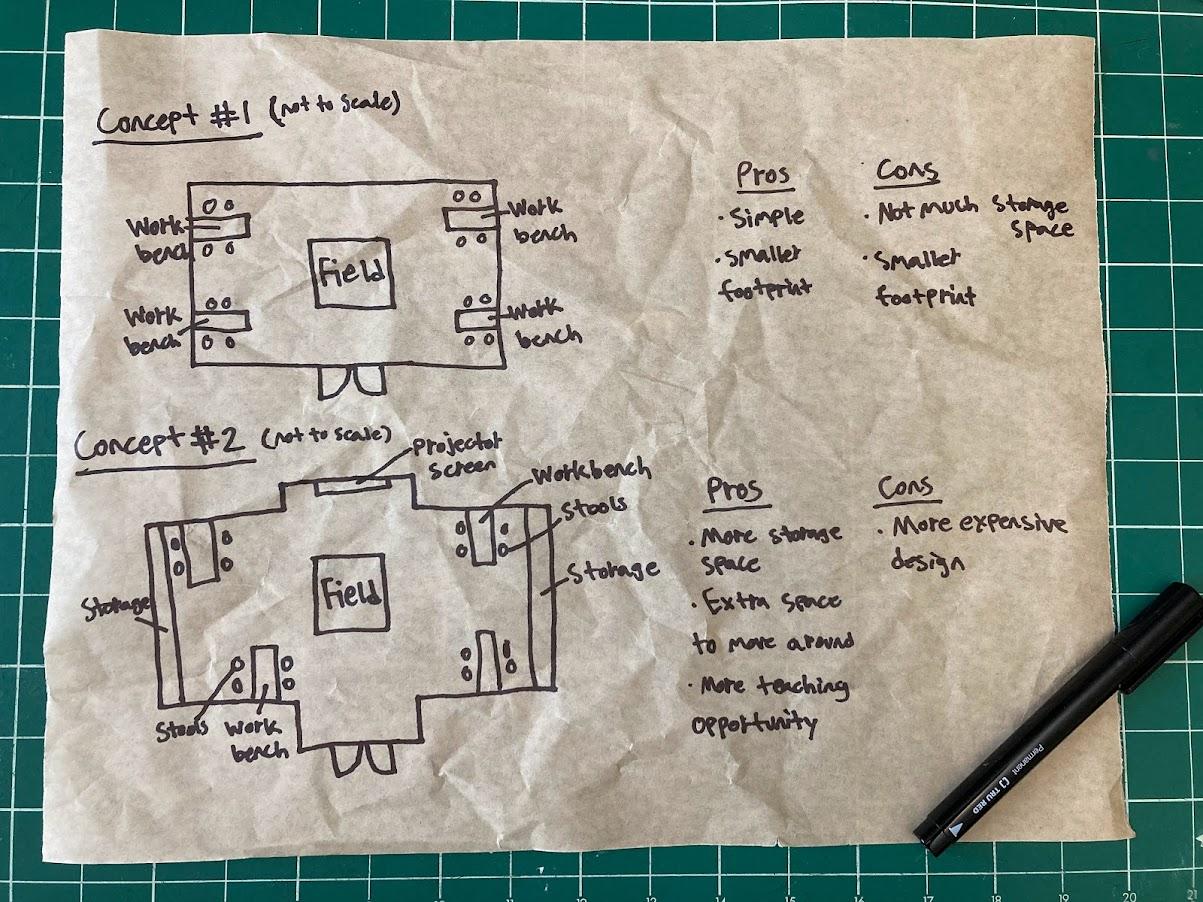 Concept #1 (not to scale)
Work
bench
Work
bench
Field
Work
bench
Work
bench
Pros
• Simple
• Smaller
footprint
Cons
• Not much storage
space
• Smaller
footprint
Concept #2 (not to scale)
Projector
Screen
Workbench
Stools
Storage
Field
Storage
Stools
Work
bench
Pros
• More storage
space
• Extra space
to move around
• More teaching
opportunity
Cons
• More expensive
design
Permanent TRU RED
10 11 12 13 14 15 16 17 18 19 20 21